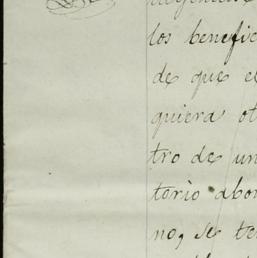 los benefic
de que e
quiera ot
tro de un
torio abo
no, se te